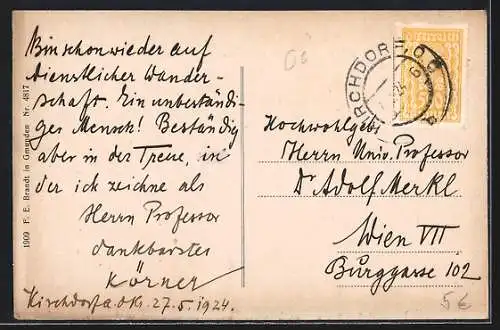 Bin schon wieder auf
dienstlicher Wander-
schaft. Ein unbeständi-
ges Mensch! Beständig
aber in der Treue, in
der ich zeichne als
Herrn Professor
dankbarstes
Körner
Kirchdorf a. d. Kr. 27.5.1924.
1909 F. E. Brandt in Gmunden Nr. 4817
KIRCHDORF, O.Ö.
Hochwohlgeb.
Herrn Univ. Professor
Dr Adolf Merkl
Wien VII
Burggasse 102
5€